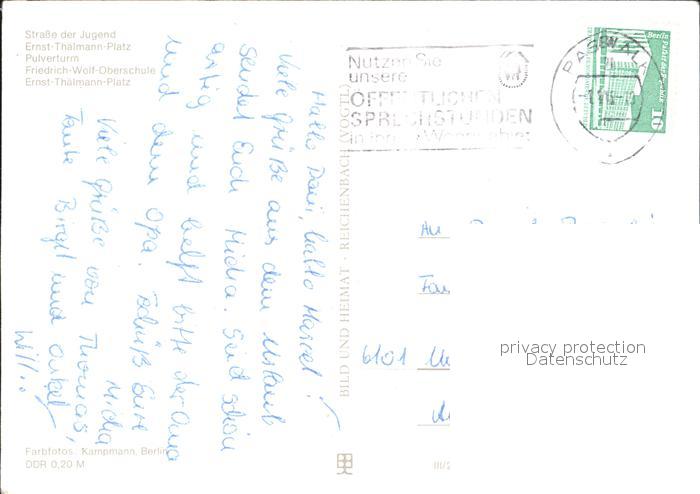 Straße der Jugend
Ernst-Thälmann-Platz
Pulverturm
Friedrich-Wolf-Oberschule
Ernst-Thälmann-Platz
Hallo Dani, hallo Marcel!
Viele Grüße aus dem Urlaub
sendet Euch Micha. Seid schön
artig und helft bitte der Oma
und dem Opa. Tschüß Eure
Micha
Viele Grüße von Thomas,
Tante Birgit und Onkel
Willi
Farbfotos: Kampmann, Berlin
DDR 0,20 M
BILD UND HEIMAT · REICHENBACH (VOGTL)
III/
Nutzen Sie
unsere
ÖFFENTLICHEN
SPRECHSTUNDEN
in Wohngebiet
PASEWALK
Berlin
10
An
Fam
6101
privacy protection
Datenschutz